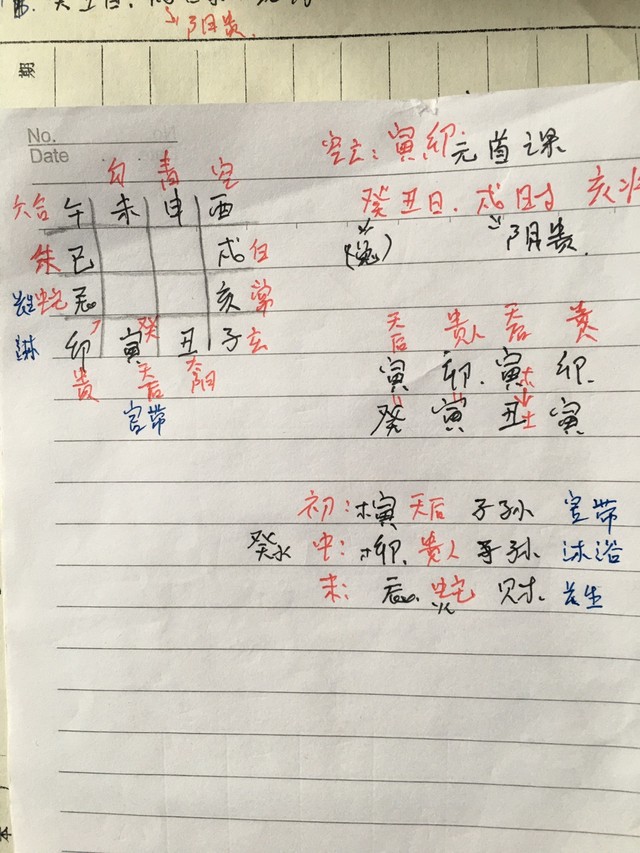 阴贵.
期
No.
Date
空亡: 寅卯 元首课
癸丑日. 戌时 亥
阴贵.
勾 青 空
六合 午 未 申 酉
朱 巳 戌 白
蛇 辰 亥 常
沐 卯 寅 癸 丑 子 玄
贵 天后 太阴
官带
天后 贵人 天后 贵
寅 卯. 寅木 卯.
癸 寅 丑土 寅
初: 木寅 天后 子孙 官带
癸水 中: 木卯. 贵人 子孙 沐浴
末: 辰. 蛇 财. 长生
火
本